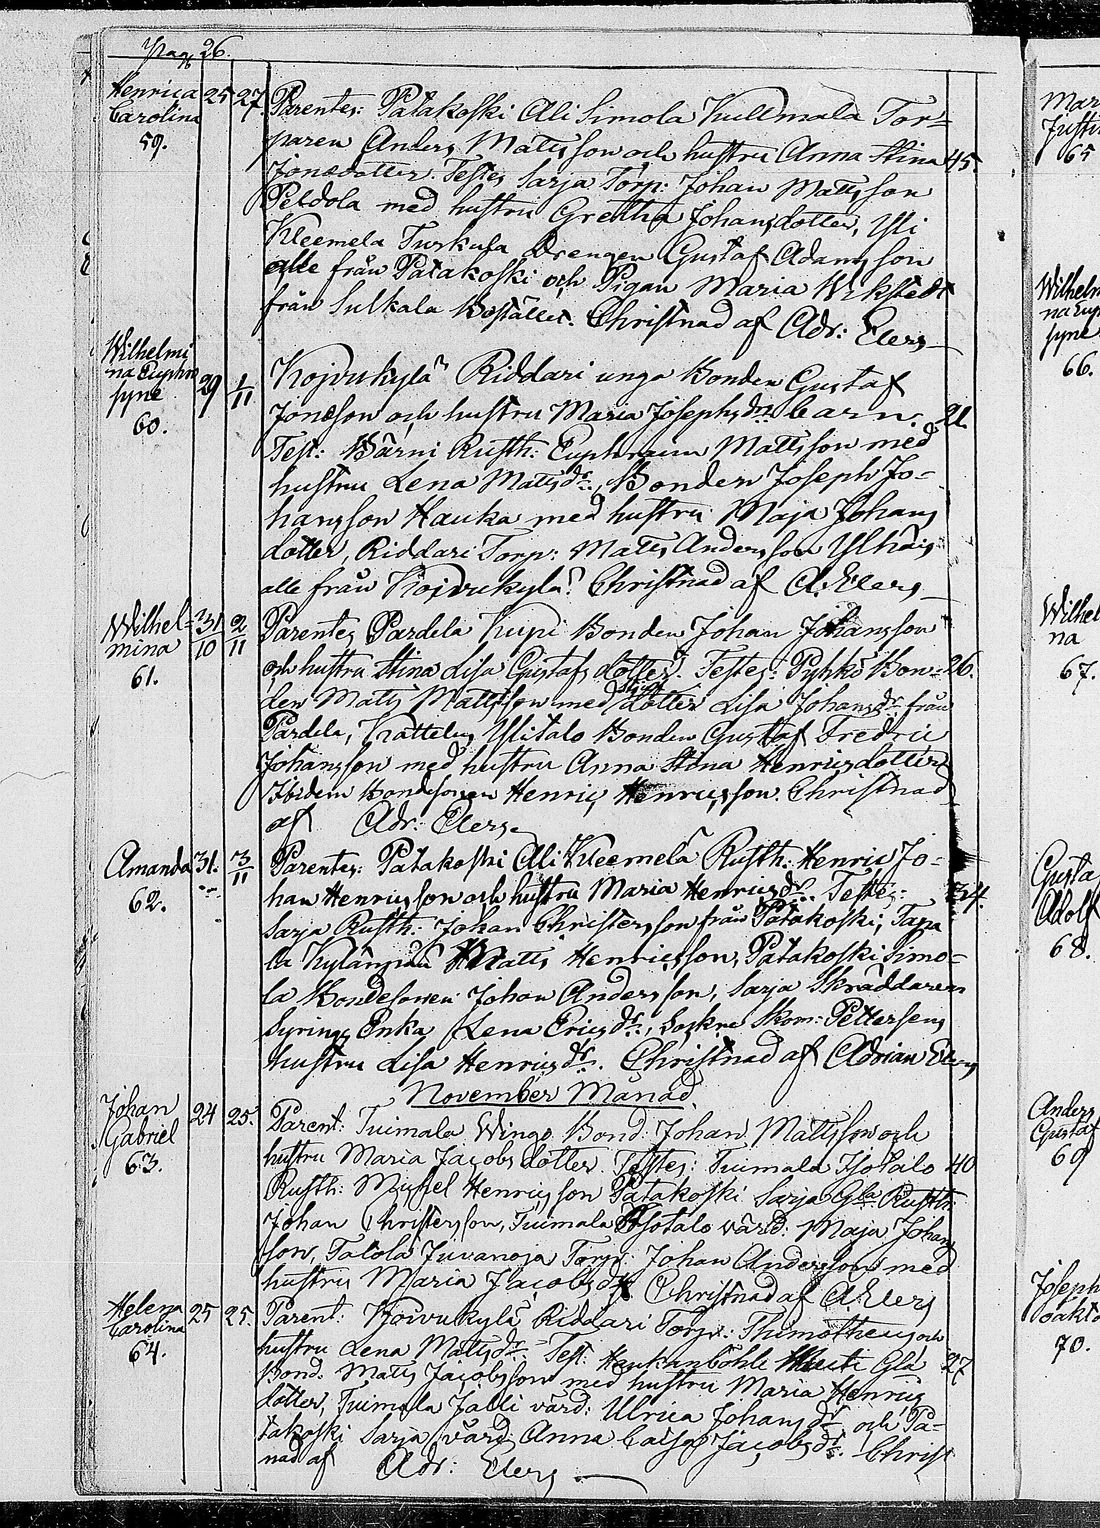 Pag. 26.
Henrica 25 27. Parentes: Patakoski Ali Simola Kullmala Tor=
Carolina paren Anders Mattsson och hustru Anna Stina 45.
59. Jonsdotter. Testes Sarja Torp: Johan Mattsson
Peldola med hustru Gretha Johansdotter, Yli
Kleemela Turkula Drengen Gustaf Adamsson
alle från Patakoski och Pigan Maria
från Sulkala Bostället. Christnad af Adr: Elers
Wilhelmi 29 1/11 Koivukylä Riddari unga Bonden Gustaf
na Euphro
syne Jonsson och hustru Maria Josephsdr barn. 21.
60. Test: Bärni Rusth: Euphraim Mattsson med
hustru Lena Mattsdr. Bonden Joseph Jo-
hansson Hauka med hustru Maja Johans
dotter, Riddari Torp: Matts Andersson
alle från Koivukylä. Christnad af A. Elers
Wilhel- 31/10 2/11 Parentes Pardela Kupi Bonden Johan Johansson
mina och hustru Stina Lisa Gustafsdotter. Testes: Pyhki Bon= 26.
61. den Matts Mattsson med dotter Lisa Johansdr från
Pardela, Kattelus Ylitalo Bonden Gustaf Fredric
Johansson med hustru Anna Stina Henricsdotter
Ibidem Bondesonen Henric Henricsson. Christnad
af Adr: Elers
Amanda 31. 3/11 Parentes: Patakoski Ali Kleemelä Rusth: Henric Jo-
62. han Henricsson och hustru Maria Henricsdr. Testes: 34.
Sarja Rusth: Johan Christersson från Patakoski, Tapa
la Matts Henricsson, Patakoski Simo-
la Bondesonen Johan Andersson, Sarja Skräddaren
Syrings Enka Lena Ericsdr, Sockne Skom: Pettersens
hustru Lisa Henricsdr. Christnad af Adrian Elers
November Månad
Johan 24 25. Parent: Tuimala Wingo Bond: Johan Mattsson och
Gabriel hustru Maria Jacobsdotter. Testes: Tuimala Isotalo 40
63. Rusth: Michel Henricsson Patakoski Sarja Gla Rusth:
Johan Christersson, Tuimala Isotalo värd: Maja Johans
son, Tatola Juvanoja Torp: Johan Andersson med
hustru Maria Jacobsdr Christnad af A. Elers
Helena 25 25. Parent: Koivukylä Riddari Torp: Thimotheus och
Carolina hustru Lena Mattsdr. Test: Haukanböhle Gla 27
64. Bond. Matts Jacobsson med hustru Maria Henrics
dotter, Tuimala Jalli värd: Ulrica Johansdr och Pa-
takoski Sarja värd: Anna Caisa Jacobsdr. Christ
nad af Adr: Elers
65
Wilhelm
66.
Wilhel
na
67.
Gusta
Adolf
68.
Anders
Gustaf
69
Joseph
70.